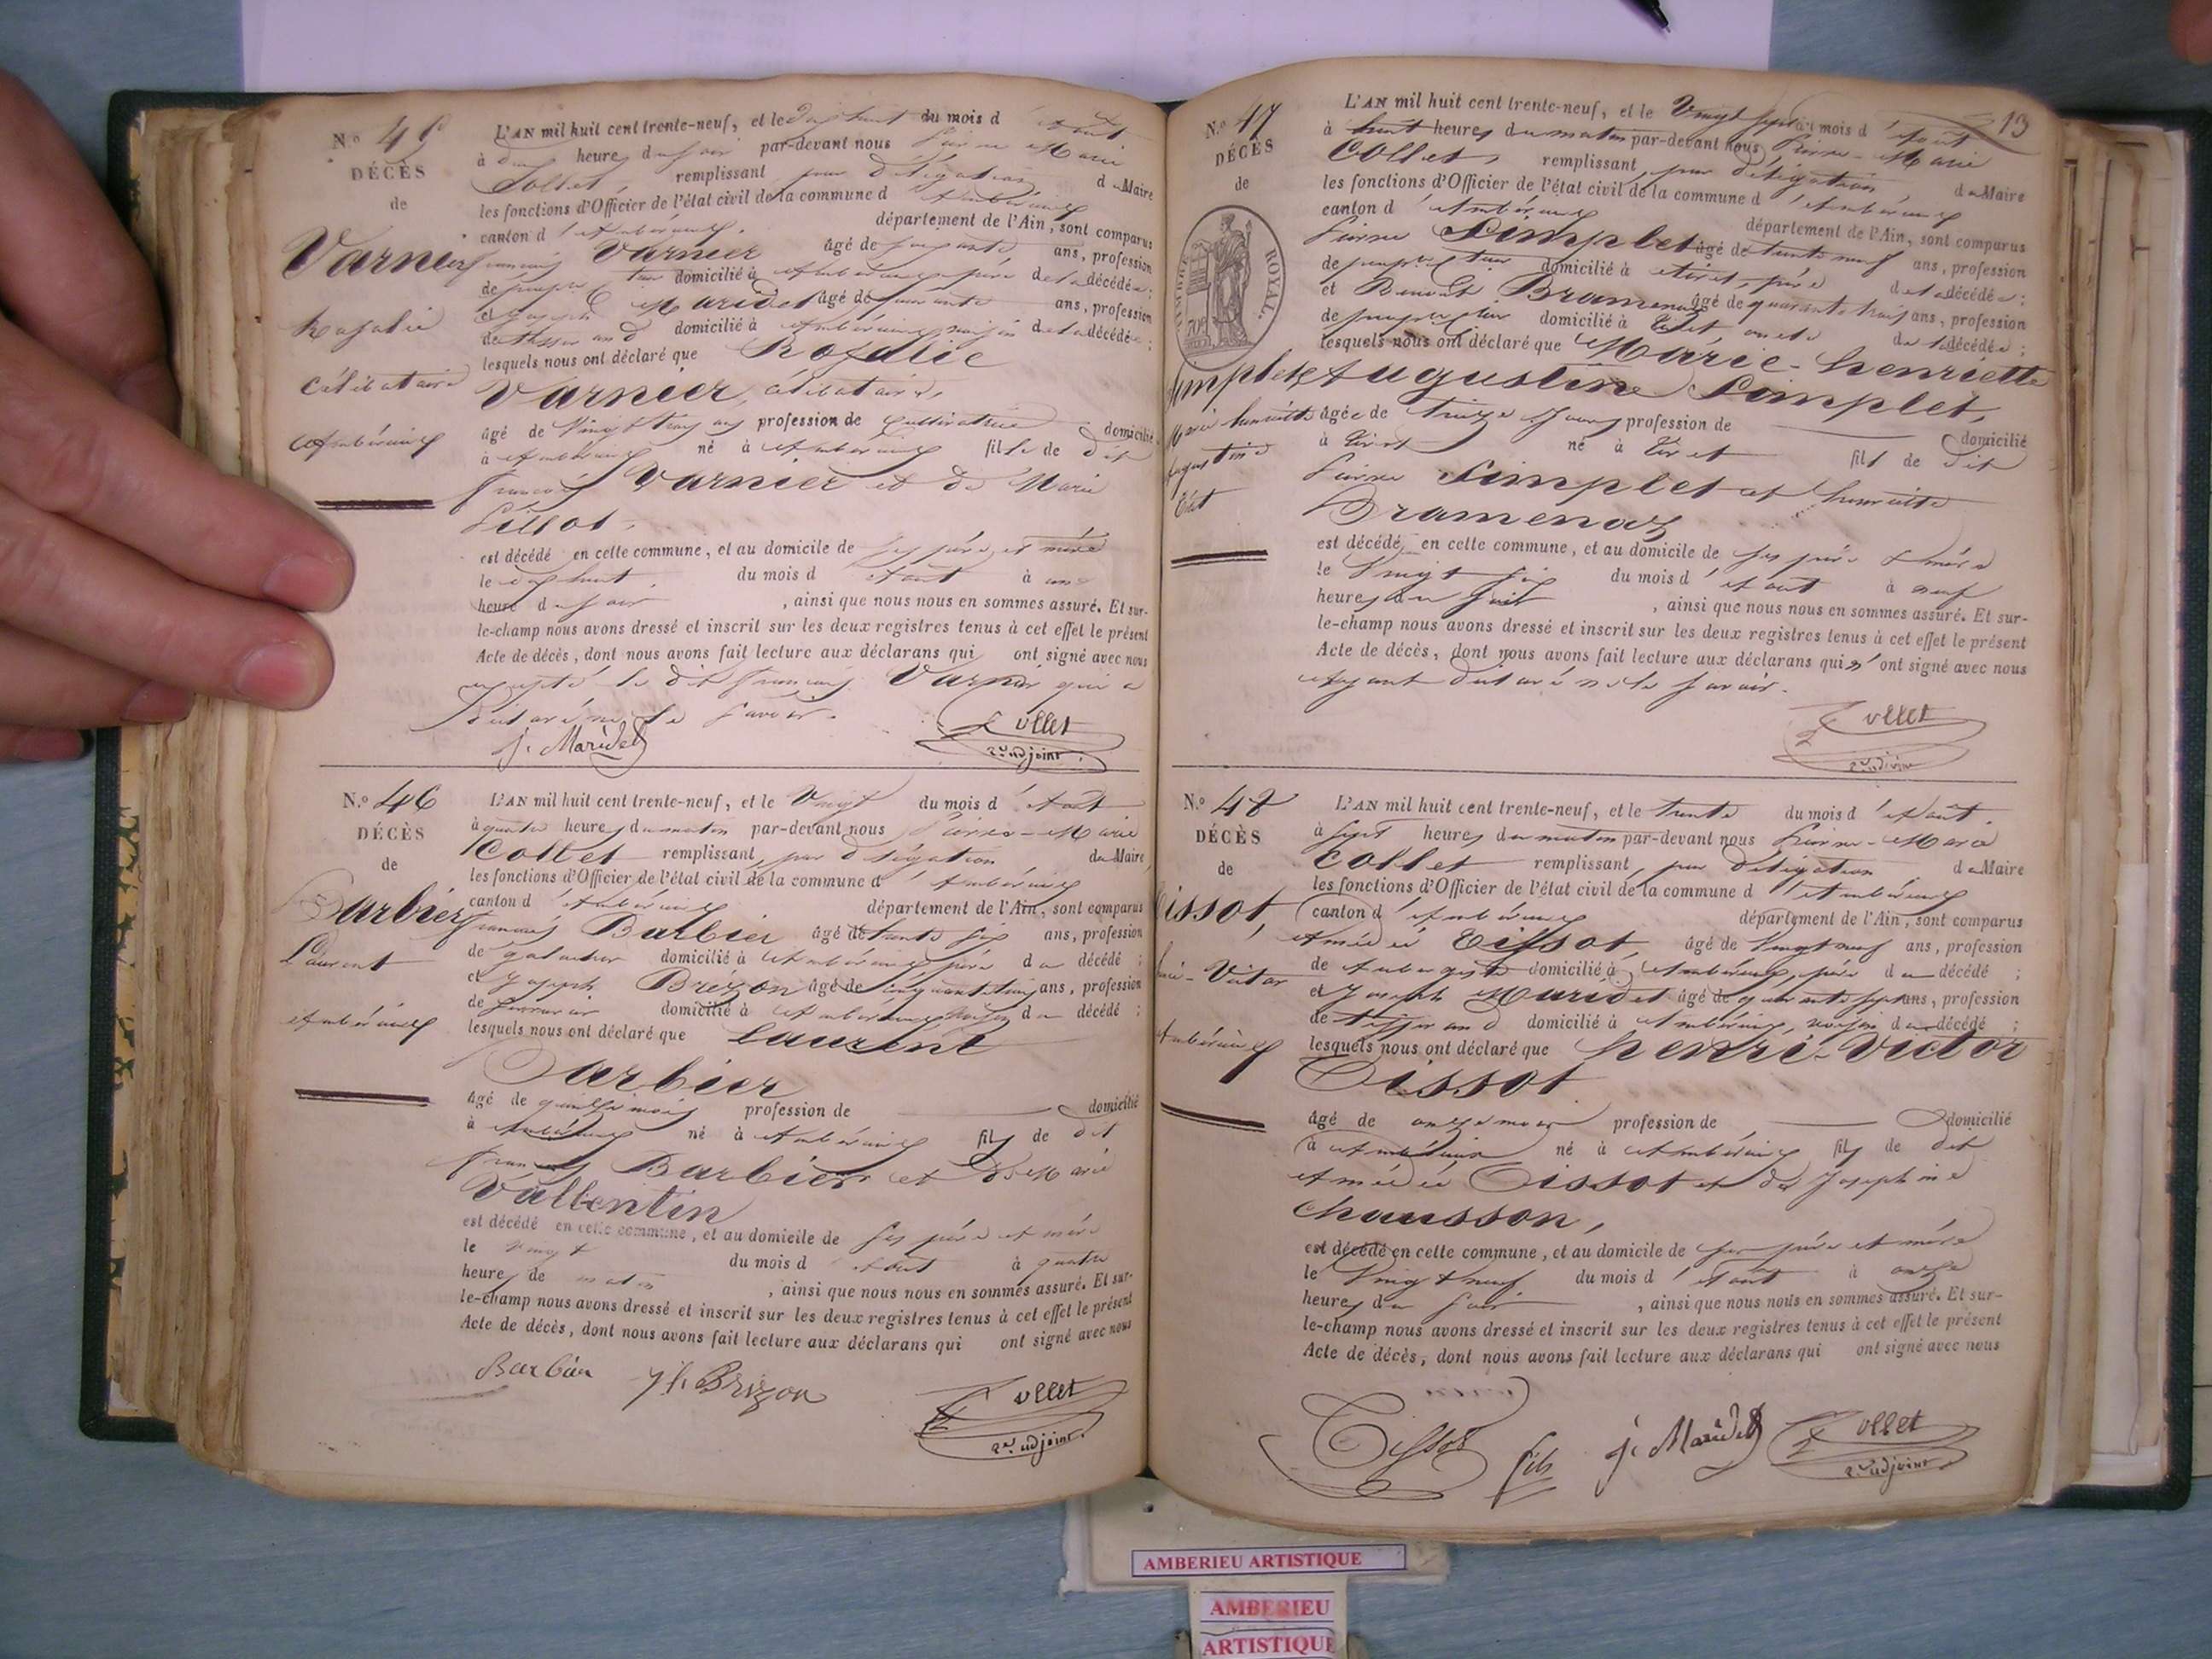 N.o 45
DÉCÈS
de
Varnier
Rosalie
Célibataire
Ambérieux
L'AN mil huit cent trente-neuf, et le dix huit du mois d'Août
à deux heures du soir par-devant nous Pierre Marie
Collet, remplissant par délégation du Maire
les fonctions d'Officier de l'état civil de la commune d'Ambérieux
canton d'Ambérieux. département de l'Ain, sont comparus
françois Varnier âgé de soixante ans, profession
de domicilié à Ambérieux père de la décédée;
et Joseph Maridet âgé de quarante ans, profession
de tisserand domicilié à Ambérieux voisin de la décédée;
lesquels nous ont déclaré que Rosalie
Varnier, célibataire,
âgé de Vingt trois ans profession de Cultivatrice domicilié
à Ambérieux né à Ambérieux fille de dit
françois Varnier et de Marie
Lillot,
est décédé en cette commune, et au domicile de ses père et mère
le dix huit du mois d'Août à une
heure du soir, ainsi que nous nous en sommes assuré. Et sur-
le-champ nous avons dressé et inscrit sur les deux registres tenus à cet effet le présent
Acte de décès, dont nous avons fait lecture aux déclarans qui ont signé avec nous
excepté le dit françois Varnier qui a
déclaré ne le savoir.
J. Maridet Collet
2.e adjoint
N.o 46
DÉCÈS
de
Barbier
Laurent
Ambérieux
L'AN mil huit cent trente-neuf, et le Vingt du mois d'Août
à quatre heures du matin par-devant nous Pierre-Marie
Collet remplissant, par délégation du Maire
les fonctions d'Officier de l'état civil de la commune d'Ambérieux
canton d'Ambérieux département de l'Ain, sont comparus
françois Barbier âgé de trente six ans, profession
de domicilié à Ambérieux père du décédé;
et Joseph Brizon âgé de ans, profession
de domicilié à Ambérieux voisin du décédé;
lesquels nous ont déclaré que Laurent
Barbier
âgé de quinze mois profession de domicilié
à Ambérieux né à Ambérieux fils de dit
françois Barbier et de Marie
Vallentin
est décédé en cette commune, et au domicile de ses père et mère
le vingt du mois d'Août à quatre
heures de matin, ainsi que nous nous en sommes assuré. Et sur-
le-champ nous avons dressé et inscrit sur les deux registres tenus à cet effet le présent
Acte de décès, dont nous avons fait lecture aux déclarans qui ont signé avec nous
Barbier Jh. Brizon Collet
2.e adjoint
13
N.o 47
DÉCÈS
de
TIMBRE ROYAL.
Simplet
Marie henriette
Augustine
Tiret
L'AN mil huit cent trente-neuf, et le Vingt sept du mois d'Août
à huit heures du matin par-devant nous Pierre-Marie
Collet, remplissant, par délégation, du Maire
les fonctions d'Officier de l'état civil de la commune d'Ambérieux
canton d'Ambérieux département de l'Ain, sont comparus
Pierre Simplet âgé de trente neuf ans, profession
de domicilié à Tiret, père de la décédée;
et Benoit Bramenaz âgé de quarante trois ans, profession
de domicilié à Tiret oncle de la décédée;
lesquels nous ont déclaré que Marie-henriette
Augustine Simplet,
âgée de Treize Jours profession de domicilié
à Tiret né à Tiret fils de dit
Pierre Simplet et henriette
Bramenaz
est décédé en cette commune, et au domicile de ses père & mère
le Vingt six du mois d'Août à neuf
heures du soir, ainsi que nous nous en sommes assuré. Et sur-
le-champ nous avons dressé et inscrit sur les deux registres tenus à cet effet le présent
Acte de décès, dont nous avons fait lecture aux déclarans qui n'ont signé avec nous
ayant déclaré ne le savoir.
Collet
2.e adjoint
N.o 48
DÉCÈS
de
Tissot,
henri-Victor
Ambérieux
L'AN mil huit cent trente-neuf, et le trente du mois d'Août.
à sept heures du matin par-devant nous Pierre-Marie
Collet remplissant, par délégation du Maire
les fonctions d'Officier de l'état civil de la commune d'Ambérieux
canton d'Ambérieux département de l'Ain, sont comparus
Amédée Tissot, âgé de Vingt neuf ans, profession
de Aubergiste domicilié à Ambérieux, père du décédé;
et Joseph Maridet âgé de quarante sept ans, profession
de tisserand domicilié à Ambérieux, voisin du décédé;
lesquels nous ont déclaré que henri-Victor
Tissot
âgé de onze mois profession de domicilié
à Ambérieux né à Ambérieux fils de dit
Amédée Tissot et de Josephine
Chausson,
est décédé en cette commune, et au domicile de ses père et mère
le Vingt neuf du mois d'Août à onze
heures du soir, ainsi que nous nous en sommes assuré. Et sur-
le-champ nous avons dressé et inscrit sur les deux registres tenus à cet effet le présent
Acte de décès, dont nous avons fait lecture aux déclarans qui ont signé avec nous
Tissot fils J. Maridet Collet
2.e adjoint
AMBERIEU ARTISTIQUE
AMBERIEU
ARTISTIQUE